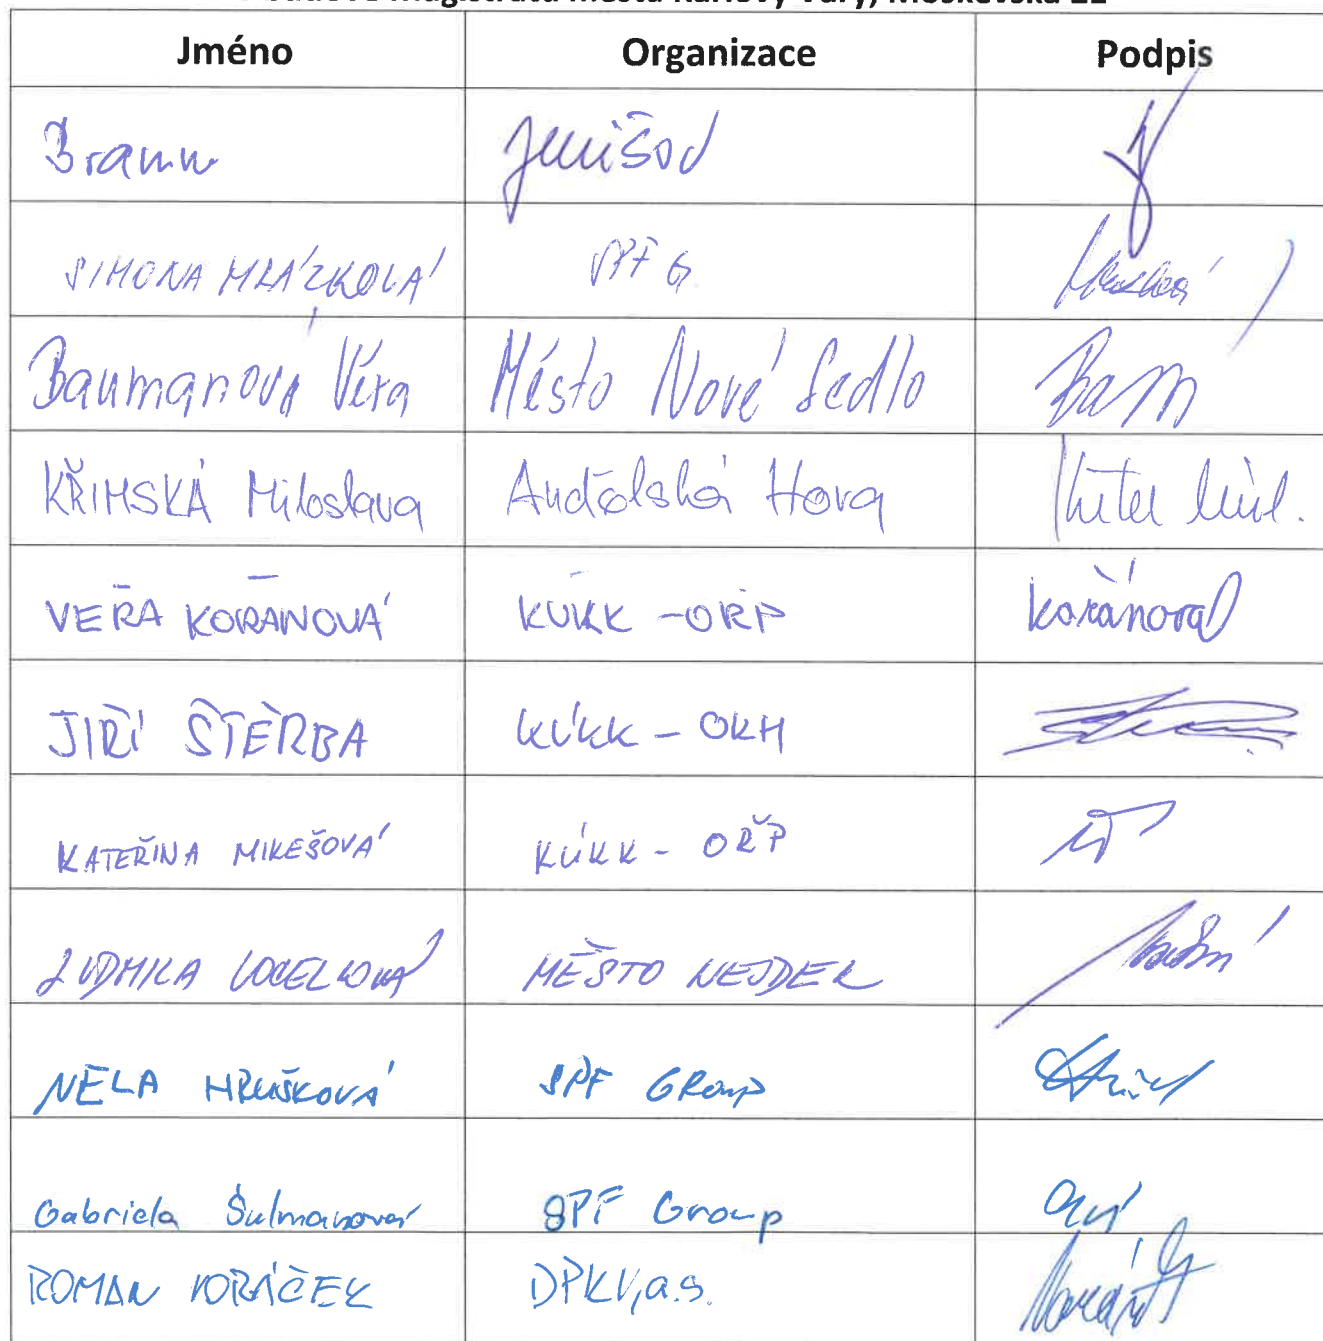 Magistrátu města Karlovy Vary, Moskevská 21
Jméno Organizace Podpis
Jenišov
SIMONA MRÁZKOVÁ SPF G
Baumanová Věra Město Nové Sedlo
KŘIMSKÁ Miloslava Andělská Hora
VĚRA KOŘÁNOVÁ KÚKK - OŘP Kořánová
JIŘÍ ŠTĚRBA KÚKK - OKH
KATEŘINA MIKEŠOVÁ KÚKK - OŘP
LUDMILA VOCELKOVÁ MĚSTO NEJDEK
NELA HRUŠKOVÁ SPF GRoup
Gabriela Šulmanová SPF Group
ROMAN VORÁČEK DPKV, a.s.